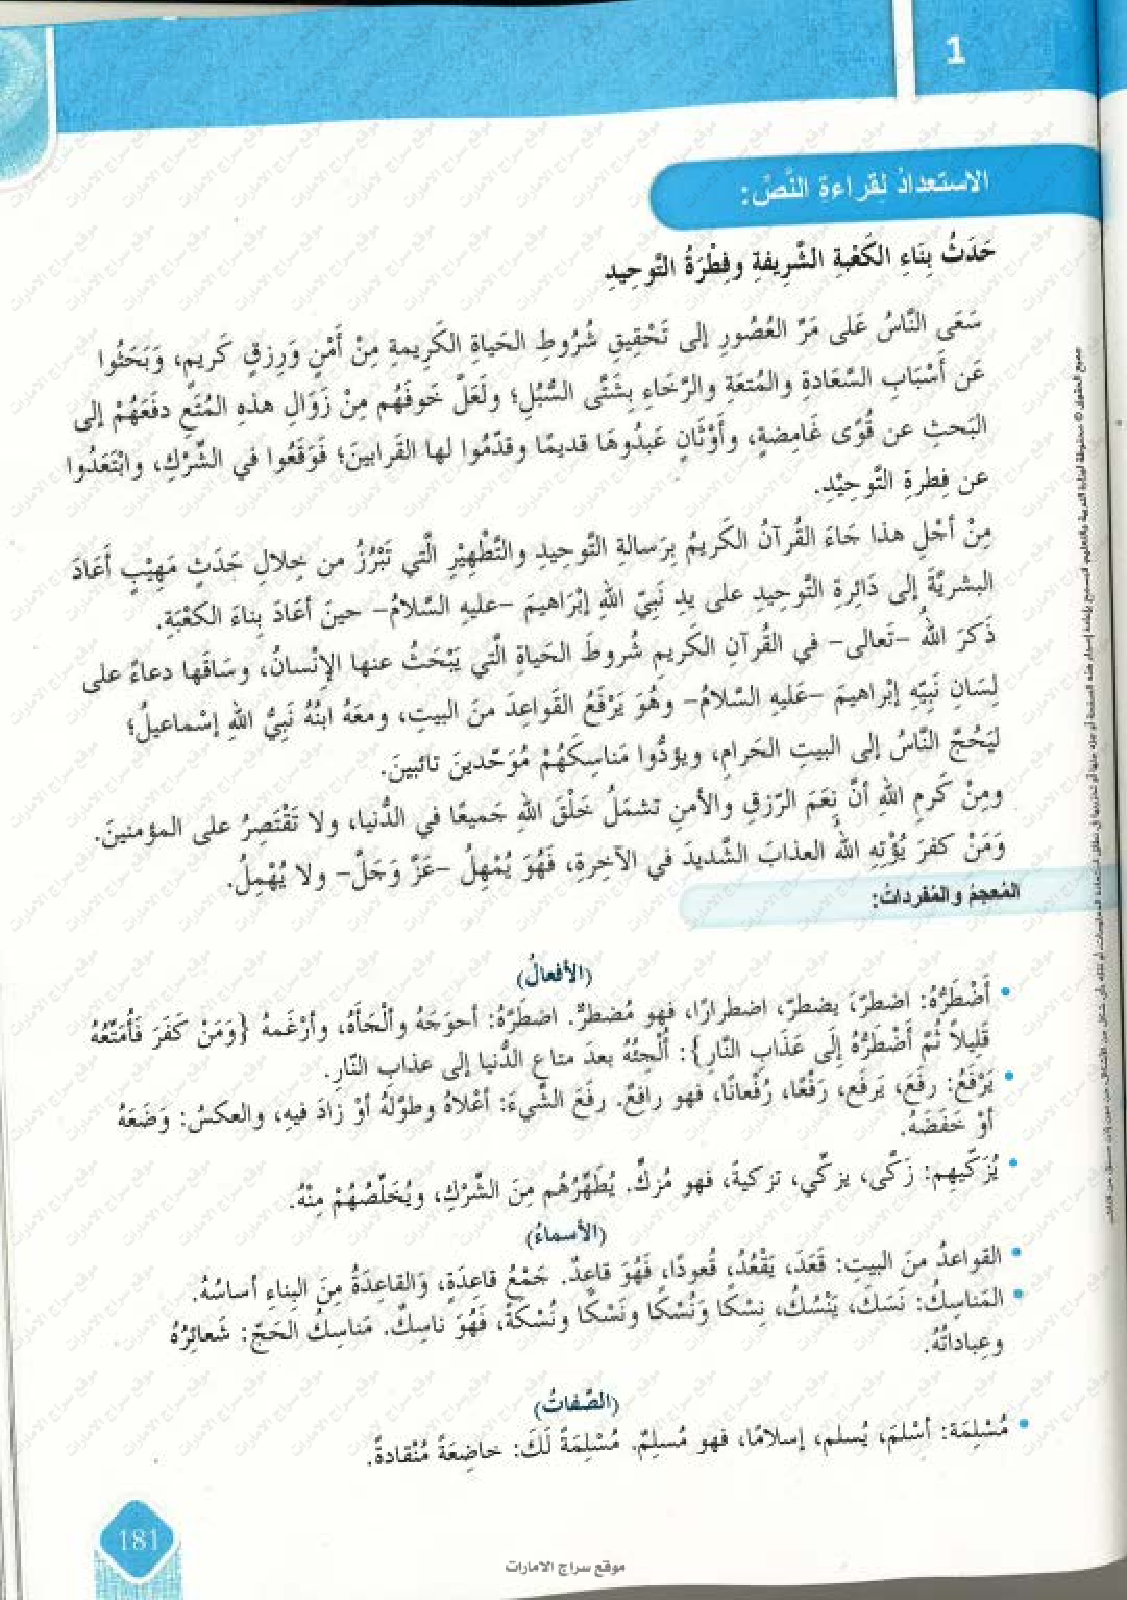 1
الاستعدادُ لِقراءةِ النَّصِّ:
حَدَثُ بِنَاءِ الكَعْبةِ الشَّرِيفةِ وفِطْرَةُ التَّوحِيدِ
سَعَى النَّاسُ عَلى مَرِّ العُصُورِ إلى تَحْقِيقِ شُرُوطِ الحَياةِ الكَرِيمةِ مِنْ أَمْنٍ وَرِزقٍ كَريمٍ، وَبَحَثُوا
عَن أَسْبَابِ السَّعَادةِ والمُتعَةِ والرَّخَاءِ بِشَتَّى السُّبُلِ؛ ولَعَلَّ خَوفَهُم مِنْ زَوَالِ هذهِ المُتَعِ دفَعَهُمْ إلى
البَحثِ عن قُوًى غَامِضةٍ، وأَوْثَانٍ عَبدُوهَا قديمًا وقدّمُوا لها القَرابينَ؛ فَوَقَعُوا في الشِّرْكِ، وابْتَعَدُوا
عن فِطرةِ التَّوحِيْدِ.
مِنْ أجْلِ هذا جَاءَ القُرآنُ الكَريمُ بِرَسالةِ التَّوحيدِ والتَّطْهِيْرِ الَّتي تَبْرُزُ من خِلالِ حَدَثٍ مَهِيْبٍ أَعَادَ
البشريَّةَ إلى دَائِرةِ التَّوحيدِ على يدِ نَبِيِّ اللهِ إبْرَاهيمَ -عليهِ السَّلامُ- حينَ أعَادَ بِناءَ الكَعْبَةِ.
ذَكرَ اللهُ -تَعالى- في القُرآنِ الكَريمِ شُروطَ الحَياةِ الَّتي يَبْحَثُ عنها الإنْسانُ، وسَاقَها دعاءً على
لِسَانِ نَبِيِّهِ إبْراهيمَ -عَليهِ السَّلامُ- وهُوَ يَرْفَعُ القَواعِدَ منَ البيتِ، ومعَهُ ابنُهُ نَبِيُّ اللهِ إسْماعيلُ؛
ليَحُجَّ النَّاسُ إلى البيتِ الحَرامِ، ويؤدُّوا مَناسِكَهُمْ مُوَحِّدينَ تائبينَ.
ومِنْ كَرمِ اللهِ أنَّ نِعَمَ الرِّزقِ والأمنِ تشمَلُ خَلْقَ اللهِ جَميعًا في الدُّنيا، ولا تَقْتَصِرُ على المؤمنينَ.
وَمَنْ كفرَ يُؤْتِهِ اللهُ العذابَ الشَّديدَ في الآخِرةِ، فَهُوَ يُمْهِلُ -عَزَّ وَجَلَّ- ولا يُهْمِلُ.
المُعجَمُ والمُفرداتُ:
(الأفعالُ)
• أَضْطَرُّهُ: اضْطرّ، يضطرّ، اضطرارًا، فهو مُضطرٌّ. اضطَرَّهُ: أحوَجَهُ وألْجَأَهُ، وأرْغَمهُ {وَمَنْ كَفَرَ فَأُمَتِّعُهُ
قَلِيلاً ثُمَّ أَضْطَرُّهُ إِلَى عَذَابِ النَّارِ}: أُلْجِئُهُ بعدَ متاعِ الدُّنيا إلى عذابِ النّارِ.
• يَرْفَعُ: رفَعَ، يَرفَع، رَفْعًا، رُفْعانًا، فهو رافعٌ. رفَعَ الشَّيءَ: أعْلاهُ وطوَّلهُ أوْ زادَ فيهِ، والعكسُ: وَضَعَهُ
أوْ خَفَضَهُ.
• يُزَكّيهِم: زَكَّى، يزكّي، تزكيةً، فهو مُزكٍّ. يُطَهِّرُهُم مِنَ الشّرْكِ، ويُخَلِّصُهُمْ مِنْهُ.
(الأسماءُ)
• القواعدُ منَ البيتِ: قَعَدَ، يَقْعُدُ، قُعودًا، فَهُوَ قاعِدٌ. جَمْعُ قاعِدَةٍ، وَالقاعِدَةُ مِنَ البِناءِ أساسُهُ.
• المَناسِكُ: نَسَكَ، يَنْسُكُ، نِسْكًا وَنُسْكًا ونَسْكًا ونُسْكَةً، فَهُوَ ناسِكٌ. مَناسِكُ الحَجّ: شَعائِرُهُ
وعِباداتُهُ.
(الصِّفاتُ)
• مُسْلِمَة: أسْلمَ، يُسلم، إسلامًا، فهو مُسلمٌ. مُسْلِمَةً لَكَ: خاضِعَةً مُنْقادةً.
181
موقع سراج الامارات